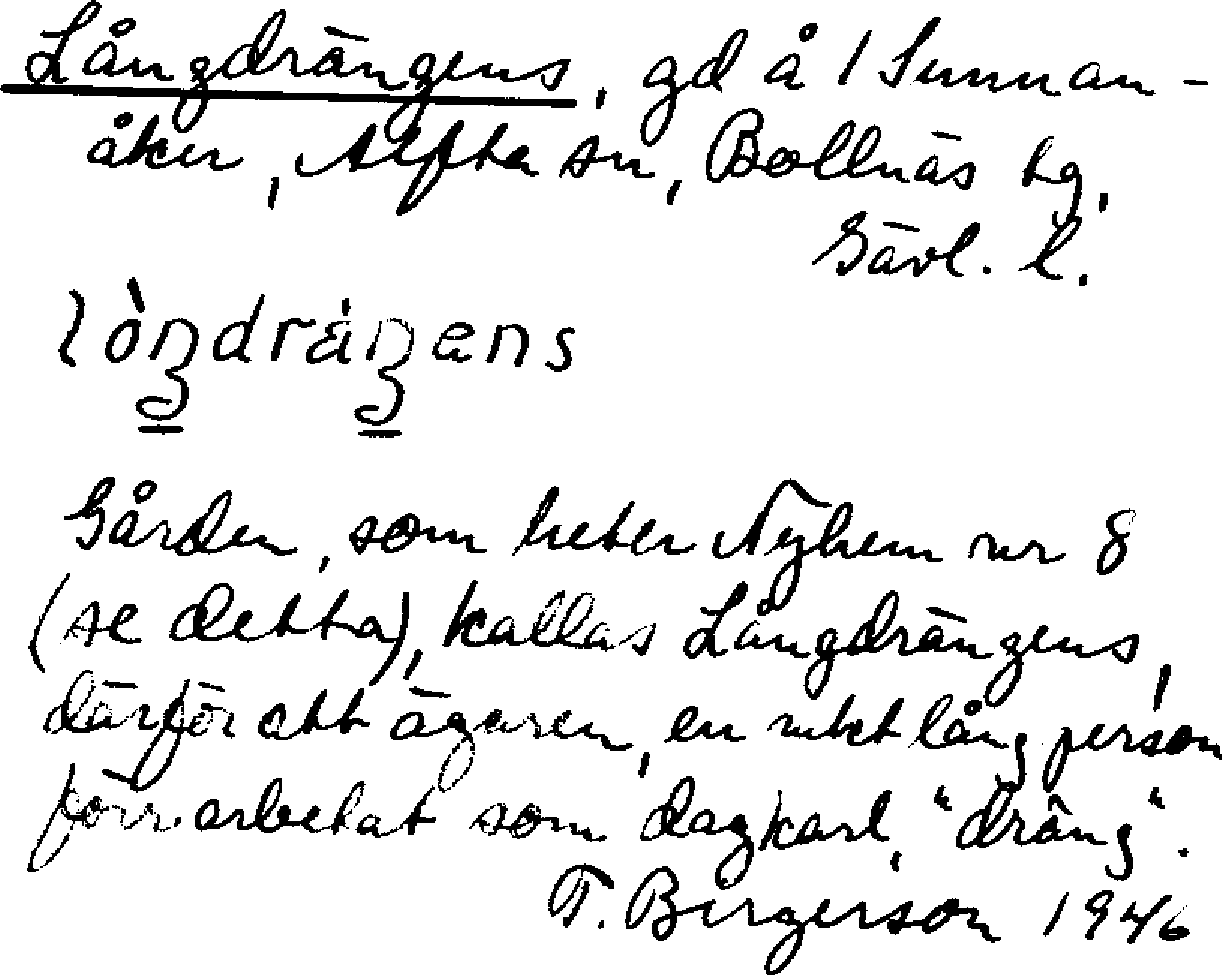 Långdrängens, gd å 1 Sunnan-
åker, Alfta sn, Bollnäs tg,
Gävl. l.
Gården, som heter Nyhem nr 8
(se detta), kallas Långdrängens,
därför att ägaren, en rikt lång person
förr arbetat som dagkarl, "dräng".
T. Birgerson 1946